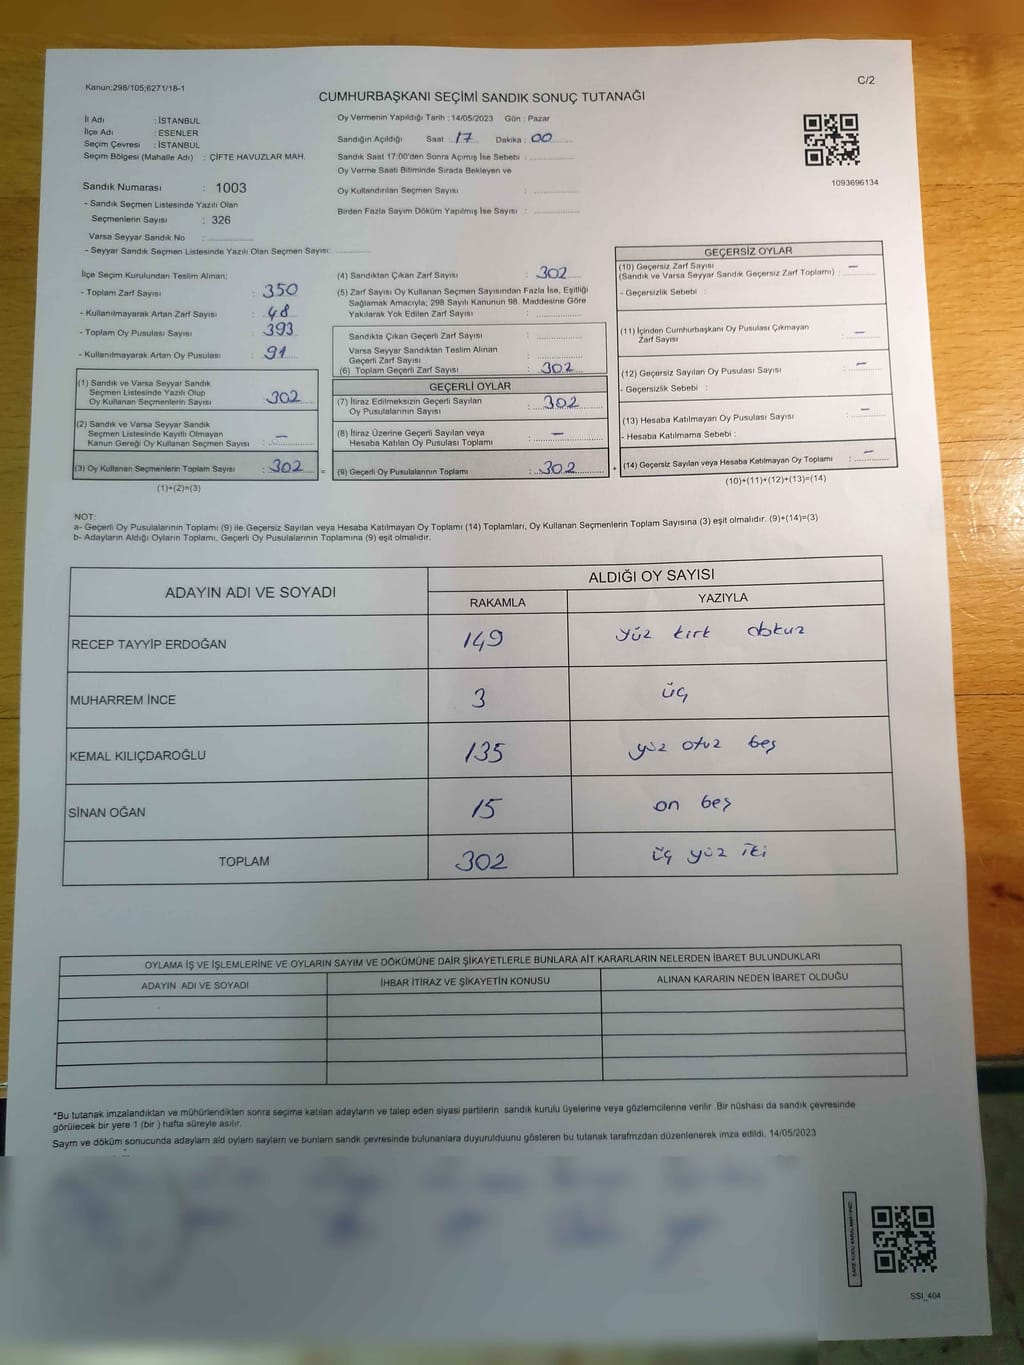 Kanun;298/105;6271/18-1
C/2
CUMHURBAŞKANI SEÇİMİ SANDIK SONUÇ TUTANAĞI
İl Adı : İSTANBUL
İlçe Adı : ESENLER
Seçim Çevresi : İSTANBUL
Seçim Bölgesi (Mahalle Adı) : ÇİFTE HAVUZLAR MAH.
Sandık Numarası : 1003
- Sandık Seçmen Listesinde Yazılı Olan
Seçmenlerin Sayısı : 326
Varsa Seyyar Sandık No :
- Seyyar Sandık Seçmen Listesinde Yazılı Olan Seçmen Sayısı:
Oy Vermenin Yapıldığı Tarih : 14/05/2023 Gün : Pazar
Sandığın Açıldığı Saat : 17 Dakika : 00
Sandık Saat 17:00'den Sonra Açımış İse Sebebi :
Oy Verme Saati Bitiminde Sırada Bekleyen ve
Oy Kullandırılan Seçmen Sayısı :
Birden Fazla Sayım Döküm Yapılmış İse Sayısı :
1093696134
İlçe Seçim Kurulundan Teslim Alınan;
- Toplam Zarf Sayısı : 350
- Kullanılmayarak Artan Zarf Sayısı : 48
- Toplam Oy Pusulası Sayısı : 393
- Kullanılmayarak Artan Oy Pusulası : 91
(1) Sandık ve Varsa Seyyar Sandık
Seçmen Listesinde Yazılı Olup
Oy Kullanan Seçmenlerin Sayısı : 302
(2) Sandık ve Varsa Seyyar Sandık
Seçmen Listesinde Kayıtlı Olmayan
Kanun Gereği Oy Kullanan Seçmen Sayısı : —
(3) Oy Kullanan Seçmenlerin Toplam Sayısı : 302 =
(1)+(2)=(3)
(4) Sandıktan Çıkan Zarf Sayısı : 302
(5) Zarf Sayısı Oy Kullanan Seçmen Sayısından Fazla İse, Eşitliği
Sağlamak Amacıyla; 298 Sayılı Kanunun 98. Maddesine Göre
Yakılarak Yok Edilen Zarf Sayısı :
Sandıkta Çıkan Geçerli Zarf Sayısı :
Varsa Seyyar Sandıktan Teslim Alınan
Geçerli Zarf Sayısı :
(6) Toplam Geçerli Zarf Sayısı : 302
GEÇERLİ OYLAR
(7) İtiraz Edilmeksizin Geçerli Sayılan
Oy Pusulalarının Sayısı : 302
(8) İtiraz Üzerine Geçerli Sayılan veya
Hesaba Katılan Oy Pusulası Toplamı : —
(9) Geçerli Oy Pusulalarının Toplamı : 302 +
GEÇERSİZ OYLAR
(10) Geçersiz Zarf Sayısı
(Sandık ve Varsa Seyyar Sandık Geçersiz Zarf Toplamı) : —
- Geçersizlik Sebebi :
(11) İçinden Cumhurbaşkanı Oy Pusulası Çıkmayan
Zarf Sayısı : —
(12) Geçersiz Sayılan Oy Pusulası Sayısı : —
- Geçersizlik Sebebi :
(13) Hesaba Katılmayan Oy Pusulası Sayısı : —
- Hesaba Katılmama Sebebi :
(14) Geçersiz Sayılan veya Hesaba Katılmayan Oy Toplamı : —
(10)+(11)+(12)+(13)=(14)
NOT:
a- Geçerli Oy Pusulalarının Toplamı (9) ile Geçersiz Sayılan veya Hesaba Katılmayan Oy Toplamı (14) Toplamları, Oy Kullanan Seçmenlerin Toplam Sayısına (3) eşit olmalıdır. (9)+(14)=(3)
b- Adayların Aldığı Oyların Toplamı, Geçerli Oy Pusulalarının Toplamına (9) eşit olmalıdır.
ADAYIN ADI VE SOYADI
ALDIĞI OY SAYISI
RAKAMLA YAZIYLA
RECEP TAYYİP ERDOĞAN 149 yüz kırk dokuz
MUHARREM İNCE 3 üç
KEMAL KILIÇDAROĞLU 135 yüz otuz beş
SİNAN OĞAN 15 on beş
TOPLAM 302 üç yüz iki
OYLAMA İŞ VE İŞLEMLERİNE VE OYLARIN SAYIM VE DÖKÜMÜNE DAİR ŞİKAYETLERLE BUNLARA AİT KARARLARIN NELERDEN İBARET BULUNDUKLARI
ADAYIN ADI VE SOYADI İHBAR İTİRAZ VE ŞİKAYETİN KONUSU ALINAN KARARIN NEDEN İBARET OLDUĞU
*Bu tutanak imzalandıktan ve mühürlendikten sonra seçime katılan adayların ve talep eden siyasi partilerin sandık kurulu üyelerine veya gözlemcilerine verilir .Bir nüshası da sandık çevresinde
görülecek bir yere 1 (bir ) hafta süreyle asılır.
Saym ve döküm sonucunda adaylarn ald oylarn saylarn ve bunlarn sandk çevresinde bulunanlara duyurulduunu gösteren bu tutanak tarafmzdan düzenlenerek imza edildi. 14/05/2023
SSI_404